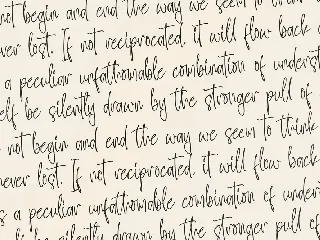 not begin and end the way we seem to think
ver lost. If not reciprocated, it will flow back
a peculiar unfathomable combination of underst
elf be silently drawn by the stronger pull of
not begin and end the way we seem to think
never lost. If not reciprocated, it will flow back
s a peculiar unfathomable combination of under
be silently drawn by the stronger pull of